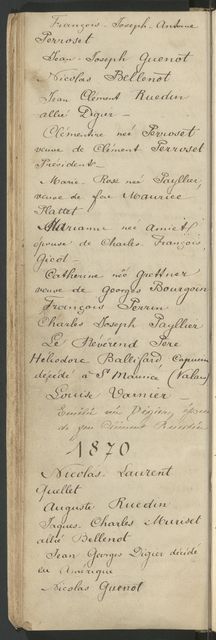 François-Joseph-Antoine
Perroset
Jean-Joseph Guenot
Nicolas Bellenot
Jean Clément Ruedin
allié Digier -
Clémentine née Perroset
veuve de Clément Perroset
Président -
Marie-Rose née Payllier,
veuve de feu Maurice
Plattet
Marianne née Amiet
épouse de Charles François
Gicot -
Catherine née Grettner
veuve de Georges Bourgoin
François Perrin
Charles Joseph Payllier
Le Révérend Père
Héliodore Ballifard Capucin
décédé à St Maurice (Valais)
Louise Varnier -
Emélie née Digier, épouse
de feu Clément Ruedin
1870
Nicolas-Laurent
Quellet
Auguste Ruedin
Jaques-Charles Muriset
allié Bellenot
Jean Georges Digier décédé
en Amérique
Nicolas Guenot